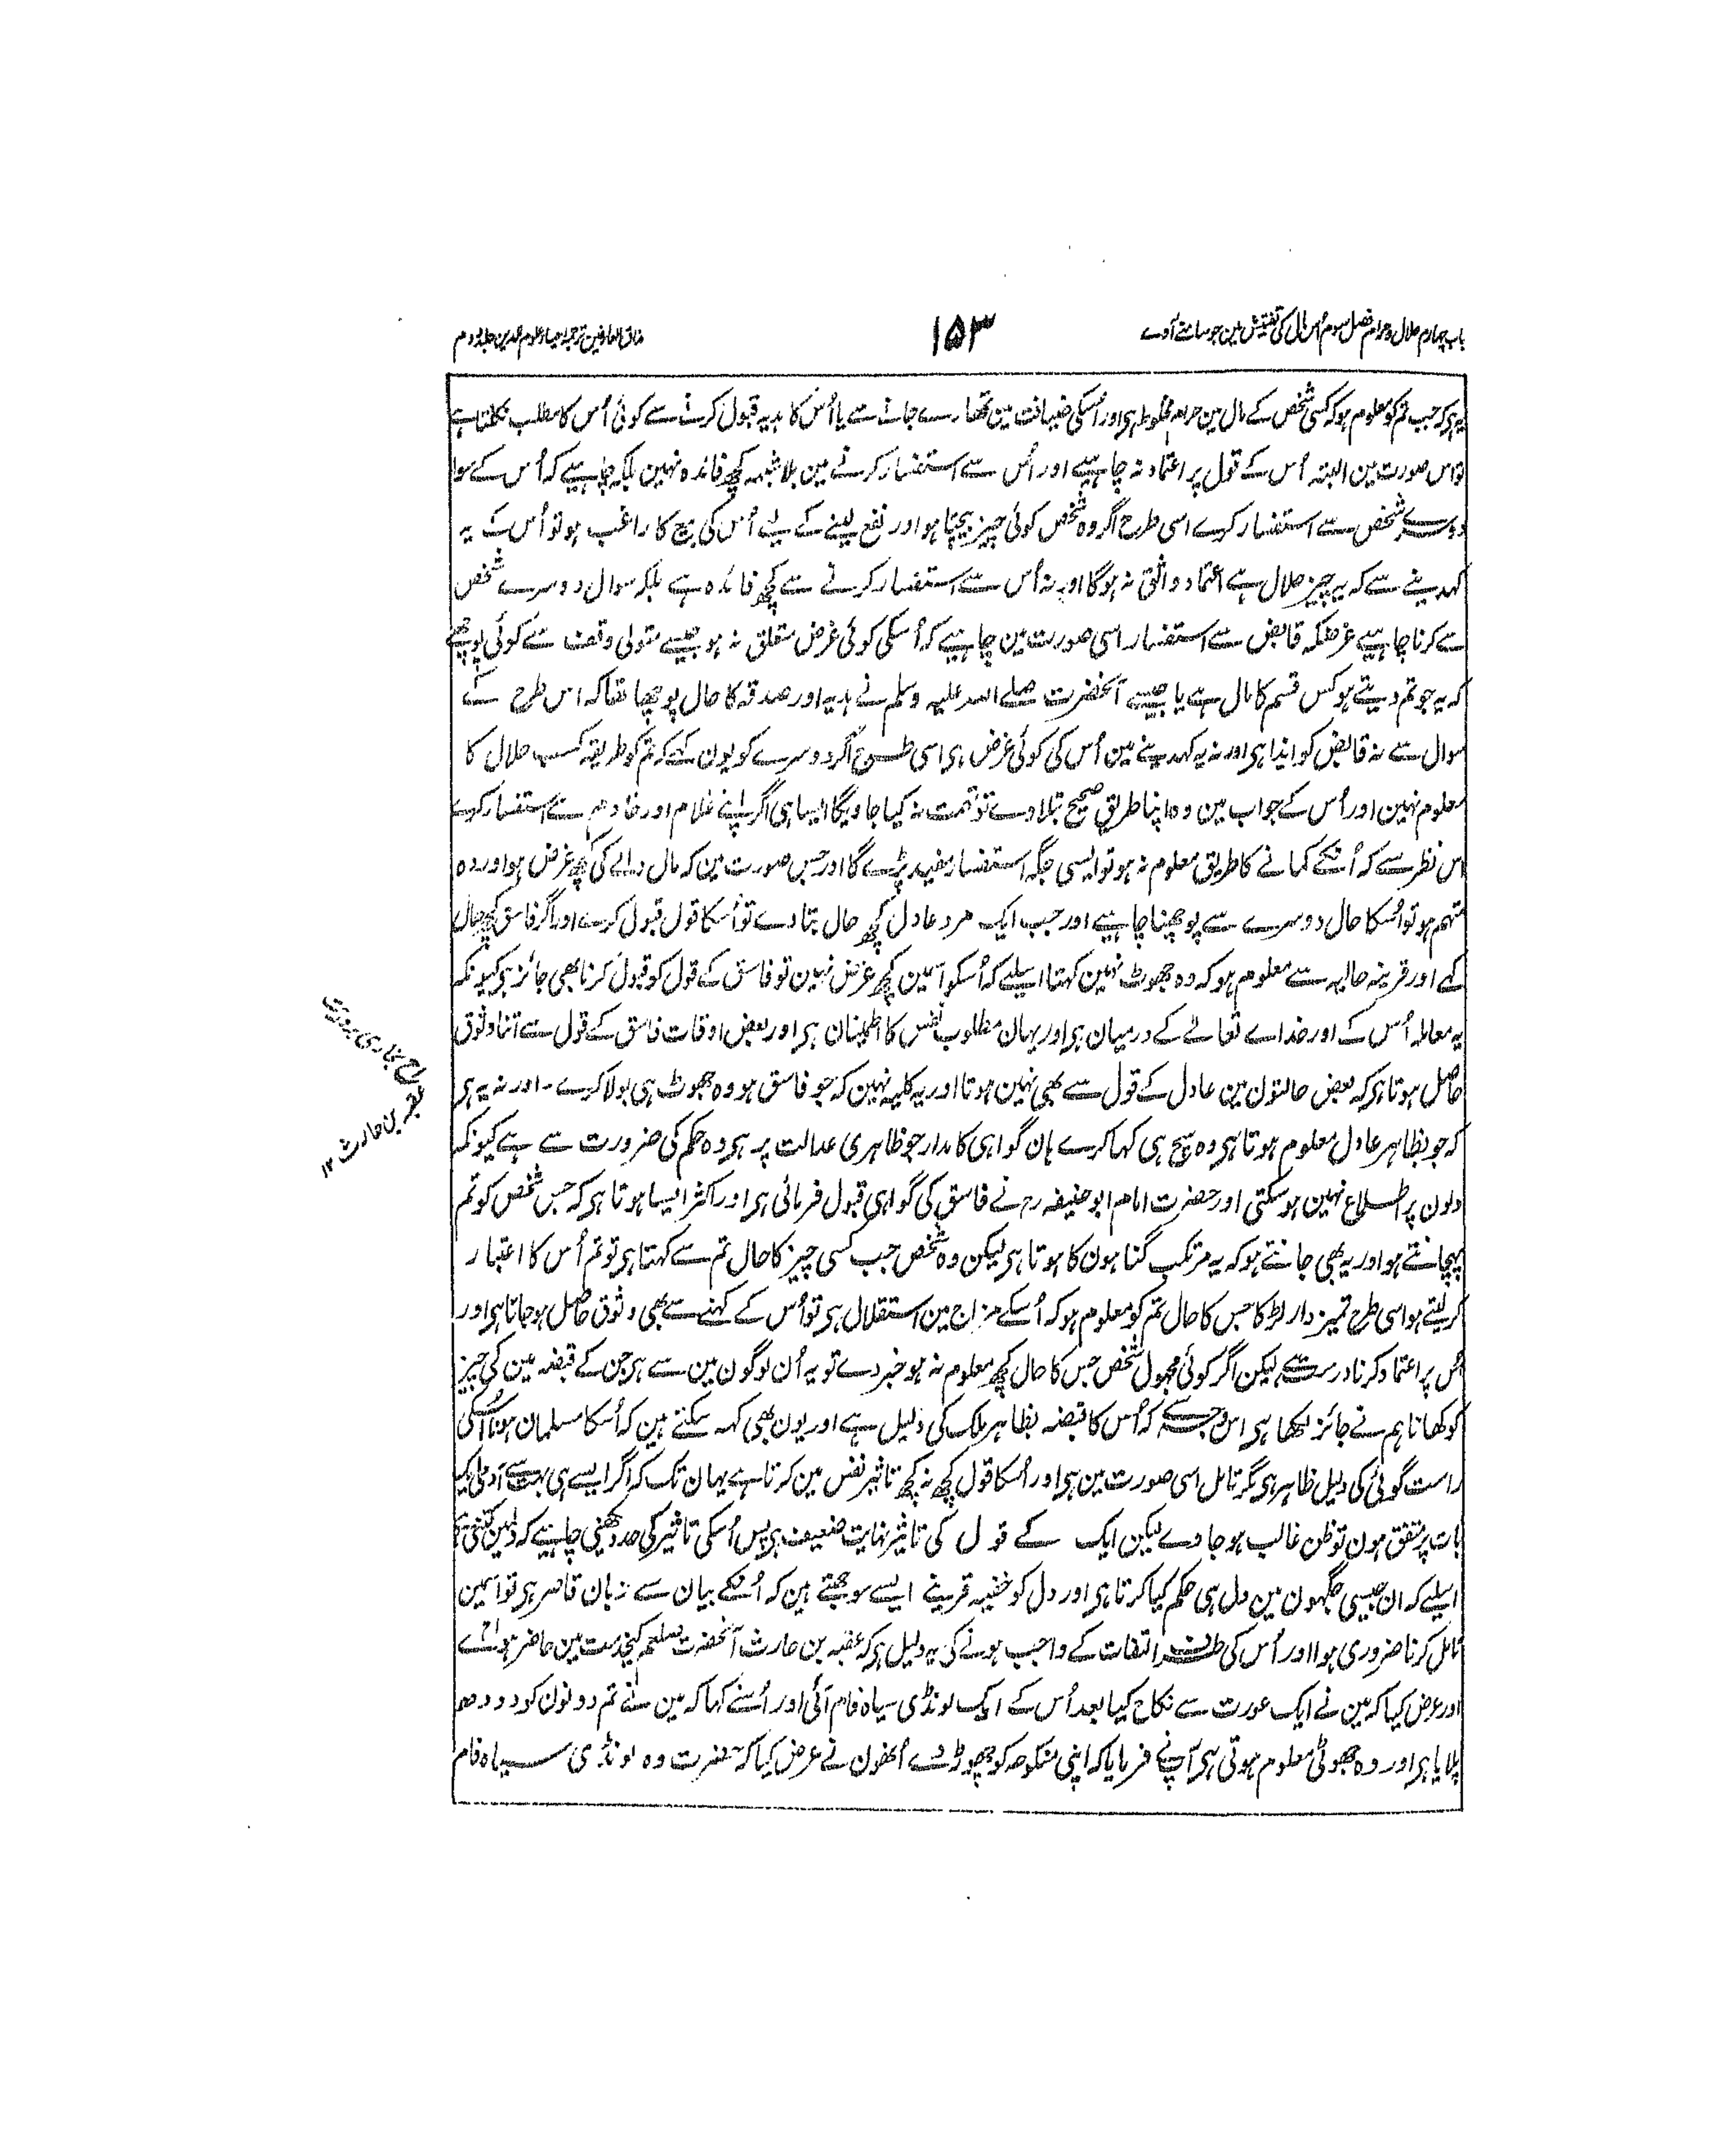 باب چہارم حلال و حرام فصل سوم اُس مال کی تفتیش مین جو سامنے آوے
۱۵۳
مذاق العارفین ترجمہ احیاء علوم الدین جلد دوم
یہ ہی کہ جب تم کو معلوم ہو کہ کسی شخص کے مال مین حرام مخلوط ہی اور اُسکی ضیافت مین تمھارے جانے سے یا اُس کا ہدیہ قبول کرنے سے کوئی اُس کا مطلب نکلتا ہے
تو اس صورت مین البتہ اُس کے قول پر اعتماد نہ چاہیے اور اُس سے استفسار کرنے مین بلا شبہہ کچھ فائدہ نہین بلکہ چاہیے کہ اُس کے سوا
دوسرے شخص سے استفسار کرے اسی طرح اگر وہ شخص کوئی چیز بیچتا ہو اور نفع لینے کے لیے اُس کی بیع کا راغب ہو تو اُس کے یہ
کہدینے سے کہ یہ چیز حلال ہے اعتماد واثق نہ ہوگا اور نہ اُس سے استفسار کرنے سے کچھ فائدہ ہے بلکہ سوال دوسرے شخص
سے کرنا چاہیے غرضکہ قابض سے استفسار اسی صورت مین چاہیے کہ اُسکی کوئی غرض متعلق نہ ہو جیسے متولی وقف سے کوئی پوچھے
کہ یہ جو تم دیتے ہو کس قسم کا مال ہے یا جیسے آنحضرت صلے اللہ علیہ وسلم نے ہدیہ اور صدقہ کا حال پوچھا تھا کہ اس طرح کے
سوال سے نہ قابض کو ایذا ہی اور نہ یہ کہدینے مین اُس کی کوئی غرض ہی اسی طرح اگر دوسرے کو یون کہے کہ تم کو طریقہ کسب حلال کا
معلوم نہین اور اُس کے جواب مین وہ اپنا طریق صحیح بتلا دے تو تہمت نہ کیا جاویگا ایسا ہی اگر اپنے غلام اور خادم سے استفسار کرے
اس نظر سے کہ اُنکے کمانے کا طریق معلوم نہ ہو تو ایسی جگہ استفسار مفید پڑے گا اور جس صورت مین کہ مال والے کی کچھ غرض ہو اور وہ
متہم ہو تو اُسکا حال دوسرے سے پوچھنا چاہیے اور جب ایک مرد عادل کچھ حال بتا دے تو اُسکا قول قبول کرے اور اگر فاسق کچھ حال
کہے اور قرینہ حالیہ سے معلوم ہو کہ وہ جھوٹ نہین کہتا اسلیے کہ اُسکو اسمین کچھ غرض نہین تو فاسق کے قول کو قبول کرنا بھی جائز ہی کیونکہ
یہ معاملہ اُس کے اور خداے تعالے کے درمیان ہی اور یہان مطلوب نفس کا اطمینان ہی اور بعض اوقات فاسق کے قول سے اتنا وثوق
حاصل ہوتا ہی کہ بعض حالتون مین عادل کے قول سے بھی نہین ہوتا اور یہ کلیہ نہین کہ جو فاسق ہو وہ جھوٹ ہی بولا کرے - اور نہ یہ ہی
کہ جو بظاہر عادل معلوم ہوتا ہی وہ سچ ہی کہا کرے ہان گواہی کا مدار جو ظاہری عدالت پر ہی وہ حکم کی ضرورت سے ہے کیونکہ
دلون پر اطلاع نہین ہو سکتی اور حضرت امام ابو حنیفہ رح نے فاسق کی گواہی قبول فرمائی ہی اور اکثر ایسا ہوتا ہی کہ جس شخص کو تم
پہچانتے ہو اور یہ بھی جانتے ہو کہ یہ مرتکب گناہون کا ہوتا ہی لیکن وہ شخص جب کسی چیز کا حال تم سے کہتا ہی تو تم اُس کا اعتبار
کر لیتے ہو اسی طرح تمیز دار لڑکا جس کا حال تم کو معلوم ہو کہ اُسکے مزاج مین استقلال ہی تو اُس کے کہنے سے بھی وثوق حاصل ہو جاتا ہی اور
اُس پر اعتماد کرنا درست ہے لیکن اگر کوئی مجہول شخص جس کا حال کچھ معلوم نہ ہو خبر دے تو یہ اُن لوگون مین سے ہی جن کے قبضہ مین کی چیز
کو کھانا ہم نے جائز لکھا ہی اس وجہ سے کہ اُس کا قبضہ بظاہر ملک کی دلیل ہے اور یون بھی کہہ سکتے ہین کہ اُسکا مسلمان ہونا اُسکی
راست گوئی کی دلیل ظاہر ہی مگر تامل اسی صورت مین ہی اور اُسکا قول کچھ نہ کچھ تاثیر نفس مین کرتا ہے یہان تک کہ اگر ایسے ہی بہت سے آدمی ایک
بات پر متفق ہون تو ظن غالب ہو جاوے لیکن ایک کے قول کی تاثیر نہایت ضعیف ہی پس اُسکی تاثیر کی حد دیکھنی چاہیے کہ دلمین کتنی ہے
اسلیے کہ ان جیسی جگہون مین دل ہی حکم کیا کرتا ہی اور دل کو خفیہ قرینے ایسے سوجھتے ہین کہ اُنکے بیان سے زبان قاصر ہی تو اسمین
تامل کرنا ضروری ہوا اور اُس کی طرف التفات کے واجب ہونے کی یہ دلیل ہی کہ عقبہ بن حارث آنحضرت صلعم کیخدمت مین حاضر ہوے
اور عرض کیا کہ مین نے ایک عورت سے نکاح کیا بعد اُس کے ایک لونڈی سیاہ فام آئی اور اُسنے کہا کہ مین نے تم دونون کو دودھ
پلایا ہی اور وہ جھوٹی معلوم ہوتی ہی آپنے فرمایا کہ اپنی منکوحہ کو چھوڑ دے اُنھون نے عرض کیا کہ حضرت وہ لونڈی سیاہ فام
بخاری بروایت
عقبہ بن حارث ۱۲